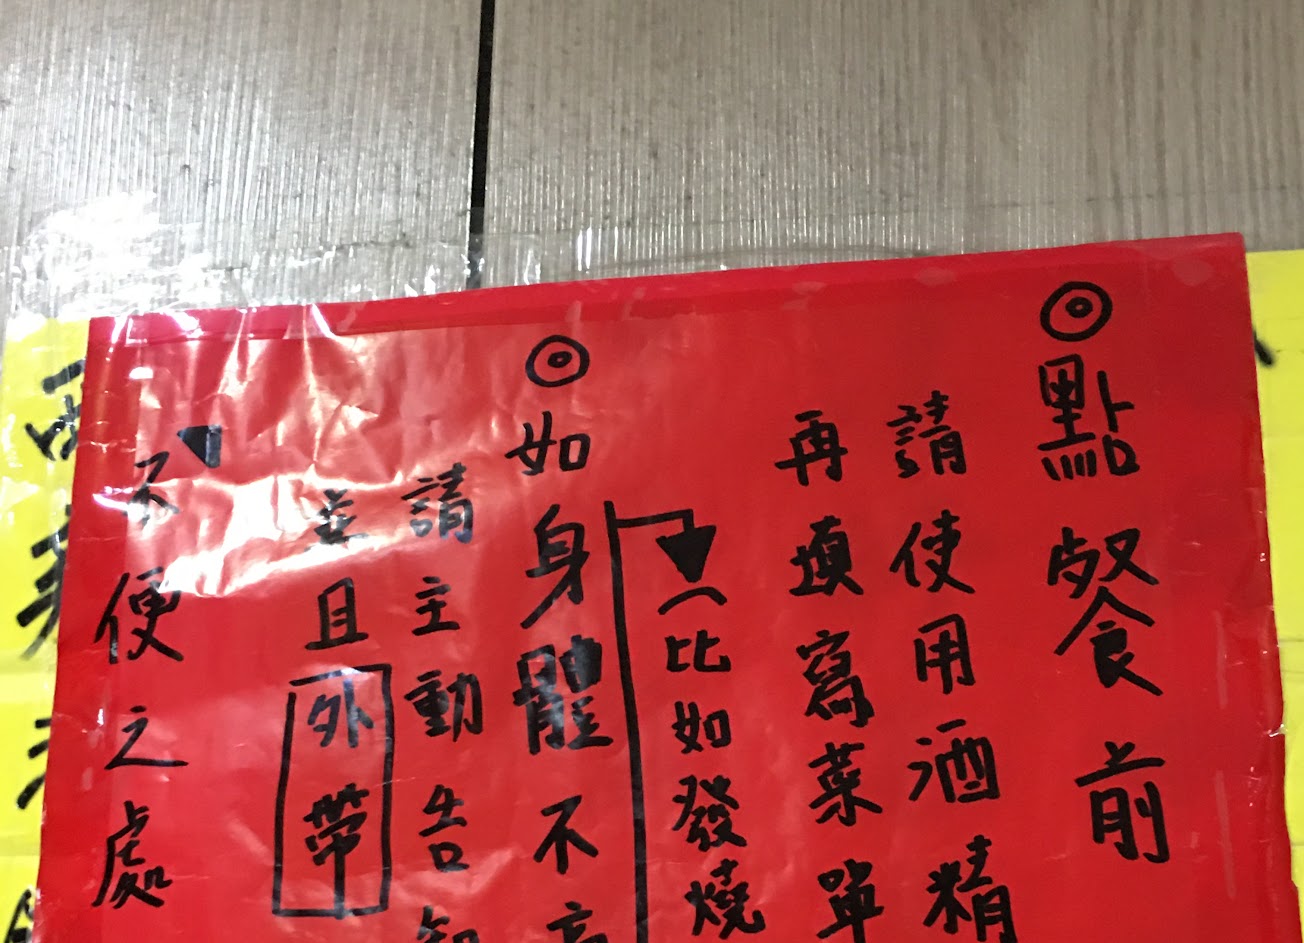 ◎點餐前
請使用酒精
再填寫菜單
(比如發燒
◎如身體不
請主動告知
並且外帶
不便之處